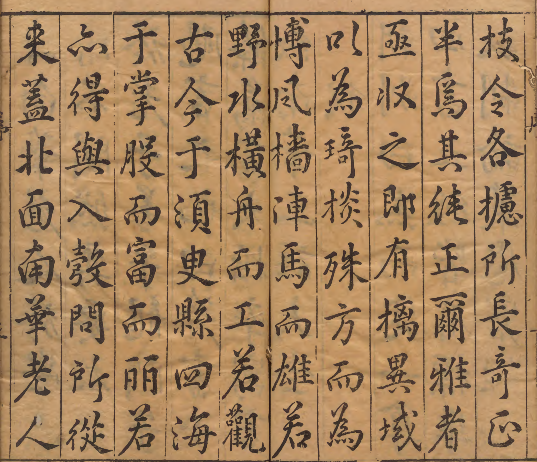 技令各攄所長奇正
半焉其純正爾雅者
亟收之即有摛異域
以為琦棪殊方而為
博風檣陣馬而雄若
野水橫舟而工若觀
古今于須叟縣四海
于掌股而富而丽若
亦得與入彀問所從
来蓋北面南華老人